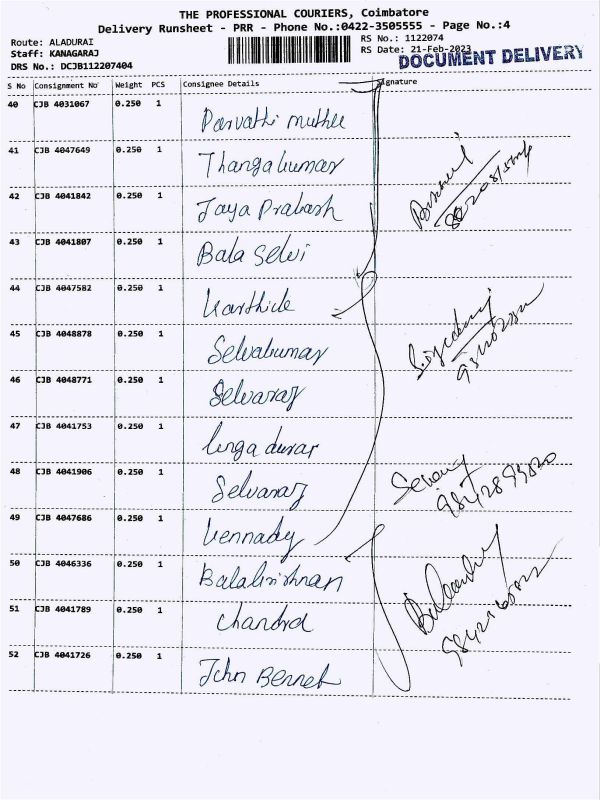 THE PROFESSIONAL COURIERS, Coimbatore
Delivery Runsheet - PRR - Phone No.:0422-3505555 - Page No.:4
Route: ALADURAI
RS No.: 1122074
Staff: KANAGARAJ
RS Date: 21-Feb-2023
DRS No.: DCJB112207404
DOCUMENT DELIVERY
S No Consignment No Weight PCS Consignee Details Signature
40 CJB 4031067 0.250 1 Parvathi muthu
41 CJB 4047649 0.250 1 Thangakumar
42 CJB 4041842 0.250 1 Jaya Prakash
43 CJB 4041807 0.250 1 Bala Selvi
44 CJB 4047582 0.250 1 Karthik
45 CJB 4048878 0.250 1 Selvakumar
46 CJB 4048771 0.250 1 Selvaraj
47 CJB 4041753 0.250 1 Linga durai
48 CJB 4041906 0.250 1 Selvaraj
49 CJB 4047686 0.250 1 Kennady
50 CJB 4046336 0.250 1 Balakrishnan
51 CJB 4041789 0.250 1 Chandra
52 CJB 4041726 0.250 1 John Bennet